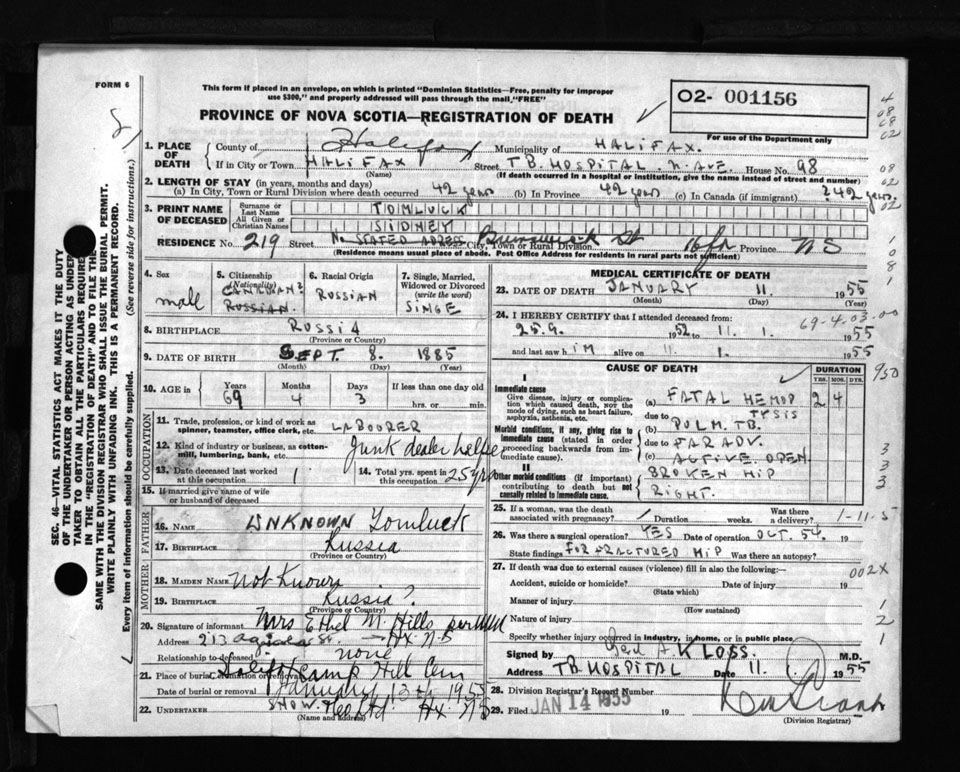 FORM 6
This form if placed in an envelope, on which is printed "Dominion Statistics—Free, penalty for improper
use $300," and properly addressed will pass through the mail, "FREE"
PROVINCE OF NOVA SCOTIA—REGISTRATION OF DEATH
02- 001156
For use of the Department only
4
08
68
02
1. PLACE OF DEATH
County of Halifax Municipality of HALIFAX.
If in City or Town HALIFAX Street T.B. HOSPITAL House No. 98
(Name) (If death occurred in a hospital or institution, give the name instead of street and number)
08
02
02
2. LENGTH OF STAY (in years, months and days)
(a) In City, Town or Rural Division where death occurred 42 years (b) In Province 42 years (c) In Canada (if immigrant) ? 42 years.
3. PRINT NAME OF DECEASED
Surname or Last Name TOMLUCK
All Given or Christian Names SIDNEY
RESIDENCE No. 219 Street No STATED ADDRESS Brunswick St City, Town or Rural Division Hfx Province N S
(Residence means usual place of abode. Post Office Address for residents in rural parts not sufficient)
1
0
8
1
4. Sex male
5. Citizenship (Nationality) CANADIAN? RUSSIAN.
6. Racial Origin RUSSIAN
7. Single, Married, Widowed or Divorced (write the word) SINGE
8. BIRTHPLACE RUSSIA
(Province or Country)
9. DATE OF BIRTH SEPT. 8. 1885
(Month) (Day) (Year)
10. AGE in Years 69 Months 4 Days 3 If less than one day old
hrs. or min.
OCCUPATION
11. Trade, profession, or kind of work as spinner, teamster, office clerk, etc. LABOURER
12. Kind of industry or business, as cotton-mill, lumbering, bank, etc. Junk dealer helper
13. Date deceased last worked at this occupation
14. Total yrs. spent in this occupation 25 yrs
15. If married give name of wife or husband of deceased
FATHER
16. NAME UNKNOWN Tomluck
17. BIRTHPLACE Russia
(Province or Country)
MOTHER
18. MAIDEN NAME Not Known
19. BIRTHPLACE Russia?
(Province or Country)
20. Signature of informant Mrs Ethel M. Hills
Address 213 St. Hx. N S
Relationship to deceased none
21. Place of burial, cremation or removal Halifax Camp Hill Cem
Date of burial or removal January 13th 1955
22. UNDERTAKER SNOW & Co Ltd. Hx N S
(Name and address)
MEDICAL CERTIFICATE OF DEATH
23. DATE OF DEATH JANUARY 11. 1955
(Month) (Day) (Year)
24. I HEREBY CERTIFY that I attended deceased from:
69-4.03.00
25.9. 1952 to 11. 1. 1955
and last saw h IM alive on 11. 1. 1955
CAUSE OF DEATH
DURATION
YRS. MOS. DYS.
950
I
Immediate cause
Give disease, injury or complication which caused death, not the mode of dying, such as heart failure, asphyxia, asthenia, etc.
(a) FATAL HEMOPTYSIS 2 4
due to
Morbid conditions, if any, giving rise to immediate cause (stated in order proceeding backwards from immediate cause).
(b) PULM. TB.
due to FAR ADV.
(c) ACTIVE. OPEN
II
Other morbid conditions (if important) contributing to death but not causally related to immediate cause.
BROKEN HIP
RIGHT.
3
3
3
25. If a woman, was the death associated with pregnancy? Duration weeks. Was there a delivery?
1-11-5
26. Was there a surgical operation? YES Date of operation OCT. 54. 19
State findings FOR FRACTURED HIP Was there an autopsy?
27. If death was due to external causes (violence) fill in also the following:—
002X
Accident, suicide or homicide? Date of injury 19
(State which)
Manner of injury
(How sustained)
1
Nature of injury
2
Specify whether injury occurred in industry, in home, or in public place
1
Signed by A KLOSS. M.D.
Address TB. HOSPITAL Date 11. 1955
28. Division Registrar's Record Number
29. Filed JAN 14 1955 19
(Division Registrar)
SEC. 46—VITAL STATISTICS ACT MAKES IT THE DUTY
OF THE UNDERTAKER OR PERSON ACTING AS UNDERTAKER
TO OBTAIN ALL THE PARTICULARS REQUIRED
IN THE "REGISTRATION OF DEATH" AND TO FILE THE
SAME WITH THE DIVISION REGISTRAR WHO SHALL ISSUE THE BURIAL PERMIT.
WRITE PLAINLY WITH UNFADING INK. THIS IS A PERMANENT RECORD.
Every item of information should be carefully supplied. (See reverse side for instructions.)